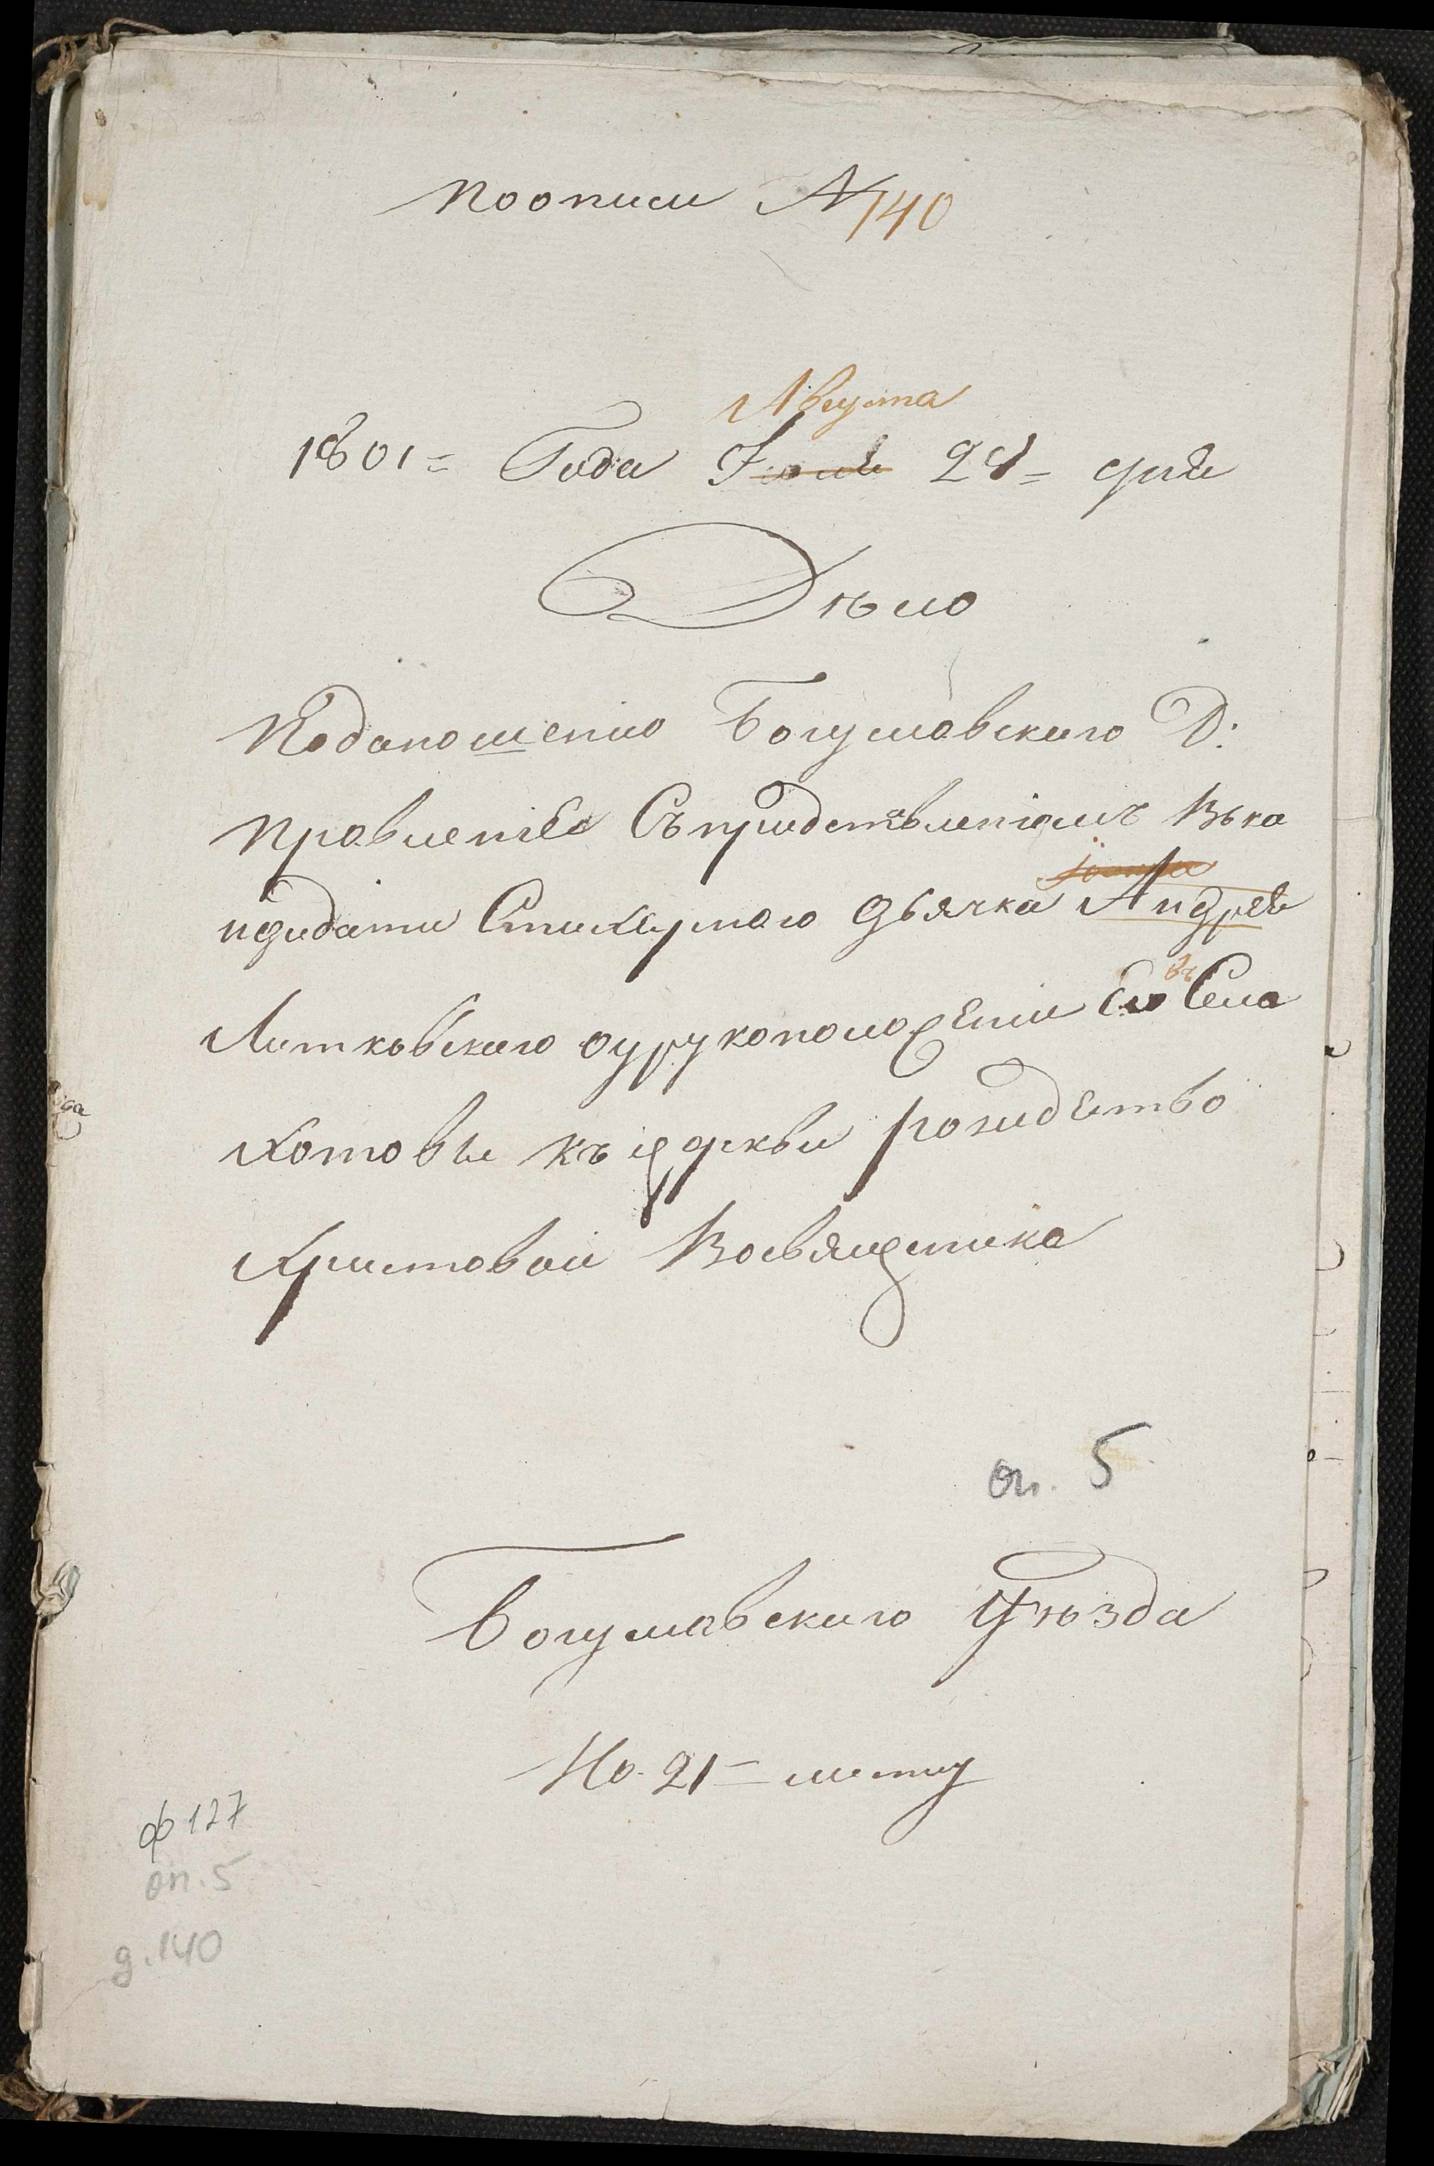 Поописи № 140
Августа
1801= Года Іюля 24= дня
Дѣло
Подоношенію Богуславского Д:
Правленія Съпредставленіемъ Вѣка
ндидати Стихарного дьячка Андрея
Литковского орукоположеніи Его въ Села
Хотовы къ церкви рождество
Христовои Восвященника
оп. 5
Богуславского уѣзда
На 21= листу
ф 127
оп. 5
д. 140